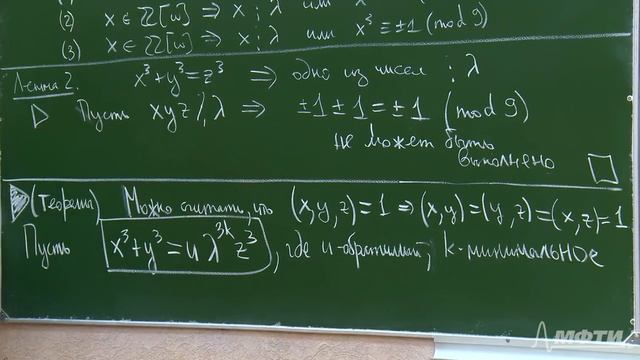 (2) x ∈ ℤ[ω] ⇒ x ⋮ λ или x
(3) x ∈ ℤ[ω] ⇒ x ⋮ λ или x³ ≡ ±1 (mod 9)
Лемма 2. x³+y³=z³ ⇒ одно из чисел ⋮ λ
▷ Пусть xyz ⋮̸ λ ⇒ ±1 ±1 = ±1 (mod 9)
не может быть
выполнено □
▷ (Теоремы) Можно считать, что (x,y,z)=1 ⇒ (x,y)=(y,z)=(x,z)=1
Пусть x³+y³=uλ³ᵏz³, где u-обратимый, k-минимальное
МФТИ